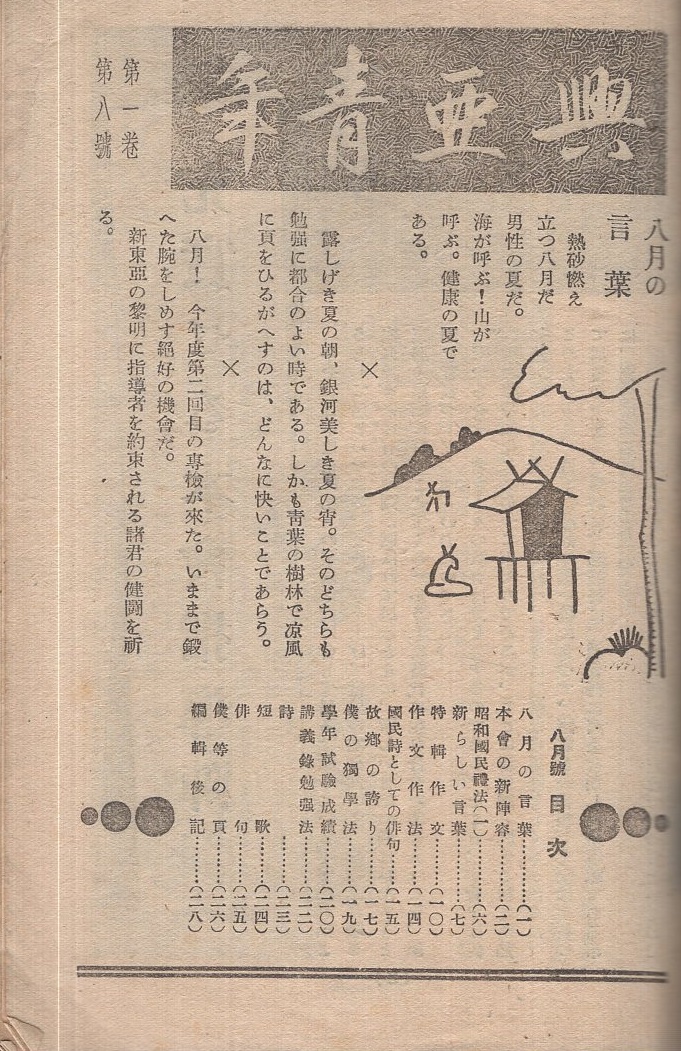 興亜青年
第一卷
第八號
八月の
言葉
熱砂燃え
立つ八月だ
男性の夏だ。
海が呼ぶ！山が
呼ぶ。健康の夏で
ある。
×
露しげき夏の朝、銀河美しき夏の宵。そのどちらも
勉强に都合のよい時である。しかも青葉の樹林で凉風
に頁をひるがへすのは、どんなに快いことであらう。
×
八月！　今年度第二回目の專檢が來た。いままで鍛
へた腕をしめす絕好の機會だ。
新東亞の黎明に指導者を約束される諸君の健鬪を祈
る。
八月號　目次
八月の言葉……（一）
本會の新陣容……（二）
昭和國民禮法（一）……（六）
新らしい言葉……（七）
特輯作文……（一〇）
作文作法……（一四）
國民詩としての俳句……（一五）
故鄕の誇り……（一七）
僕の獨學法……（一九）
學年試驗成績……（二〇）
講義錄勉强法……（二二）
詩……（二三）
短歌……（二四）
俳句……（二五）
僕等の頁……（二六）
編輯後記……（二八）